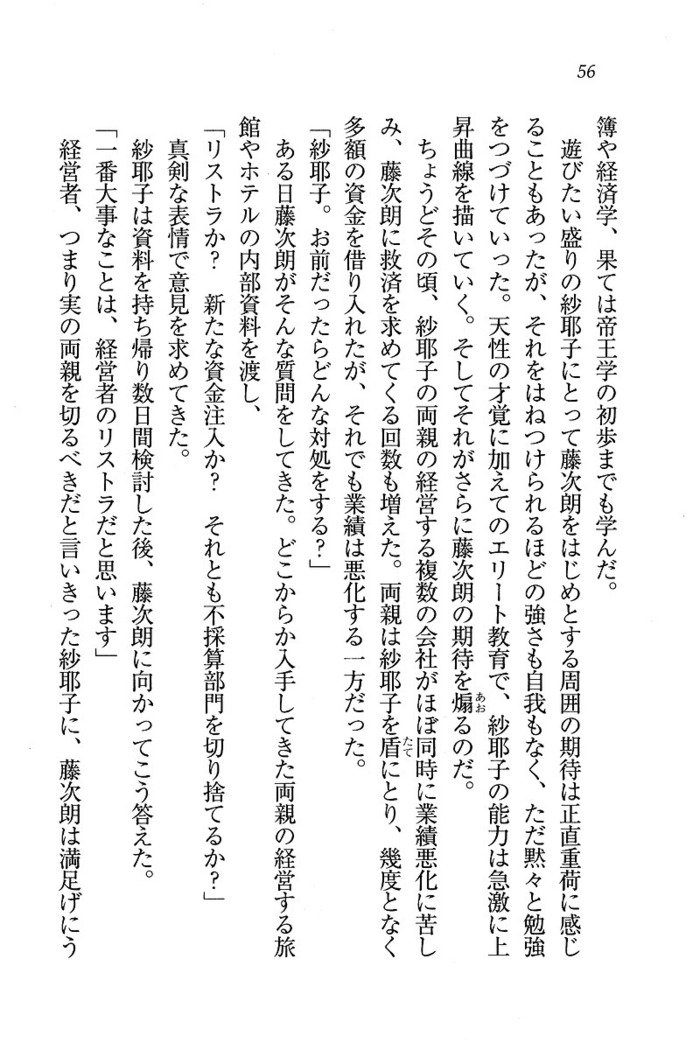 56
簿や経済学、果ては帝王学の初歩までも学んだ。
　遊びたい盛りの紗耶子にとって藤次朗をはじめとする周囲の期待は正直重荷に感じ
ることもあったが、それをはねつけられるほどの強さも自我もなく、ただ黙々と勉強
をつづけていった。天性の才覚に加えてのエリート教育で、紗耶子の能力は急激に上
昇曲線を描いていく。そしてそれがさらに藤次朗の期待を煽あおるのだ。
　ちょうどその頃、紗耶子の両親の経営する複数の会社がほぼ同時に業績悪化に苦し
み、藤次朗に救済を求めてくる回数も増えた。両親は紗耶子を盾たてにとり、幾度となく
多額の資金を借り入れたが、それでも業績は悪化する一方だった。
「紗耶子。お前だったらどんな対処をする？」
　ある日藤次朗がそんな質問をしてきた。どこからか入手してきた両親の経営する旅
館やホテルの内部資料を渡し、
「リストラか？　新たな資金注入か？　それとも不採算部門を切り捨てるか？」
　真剣な表情で意見を求めてきた。
　紗耶子は資料を持ち帰り数日間検討した後、藤次朗に向かってこう答えた。
「一番大事なことは、経営者のリストラだと思います」
　経営者、つまり実の両親を切るべきだと言いきった紗耶子に、藤次朗は満足げにう